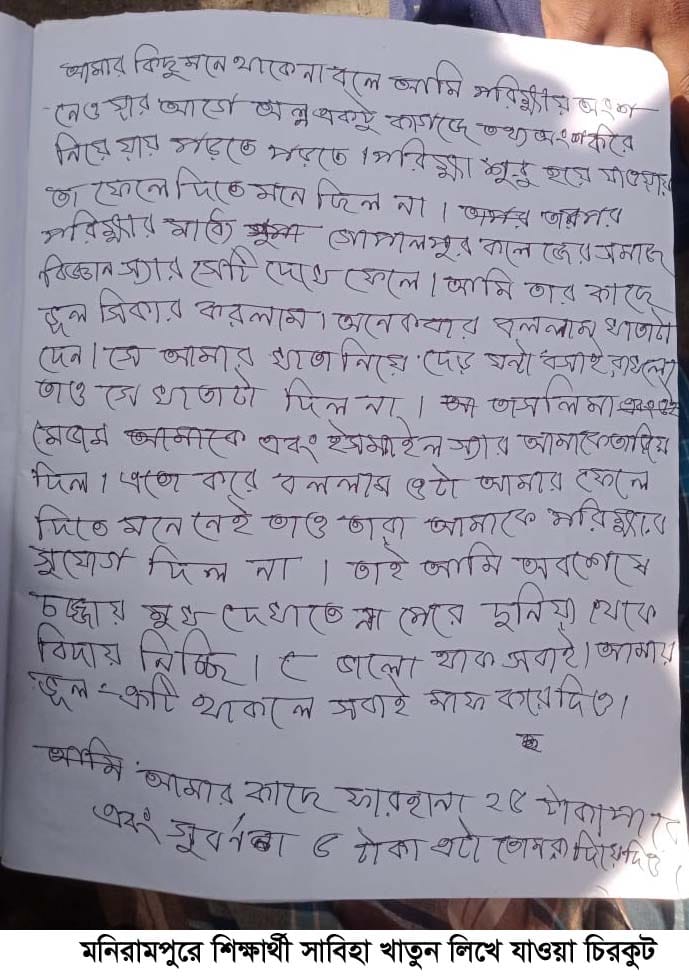 আমার কিছু মনে থাকে না বলে আমি পরিক্ষায় অংশ
নেওয়ার আগে অল্প একটু কাগজে তথ্য অংশ করে
নিয়ে যায় পড়তে পড়তে। পরিক্ষা শুরু হয়ে যাওয়ায়
তা ফেলে দিতে মনে ছিল না। তারপর
পরিক্ষার মাঝে গোপালপুর কলেজের সমাজ
বিজ্ঞান স্যার সেটি দেখে ফেলে। আমি তার কাছে
ভুল সিকার করলাম। অনেকবার বললাম খাতাটা
দেন। সে আমার খাতা নিয়ে দেড় ঘন্টা বসাই রাখলো
তাও সে খাতাটা দিল না। তাসলিমা
মেডাম আমাকে এবং ইসমাইল স্যার আমাকে তাড়িয়ে
দিল। এতো করে বললাম ওটা আমার ফেলে
দিতে মনে নেই তাও তারা আমাকে পরিক্ষার
সুযোগ দিল না। তাই আমি অবশেষে
মুখ দেখাতে না পেরে দুনিয়া থেকে
বিদায় নিচ্ছি। ভালো থাক সবাই। আমার
ভুল-ত্রুটি থাকলে সবাই মাফ করে দিও।
আমি আমার কাছে ফারহানা ২৫ টাকা পাবে
এবং সুবর্না ৫ টাকা এটা তোমরা দিয়ে দিও।
মনিরামপুরে শিক্ষার্থী সাবিহা খাতুন লিখে যাওয়া চিরকুট